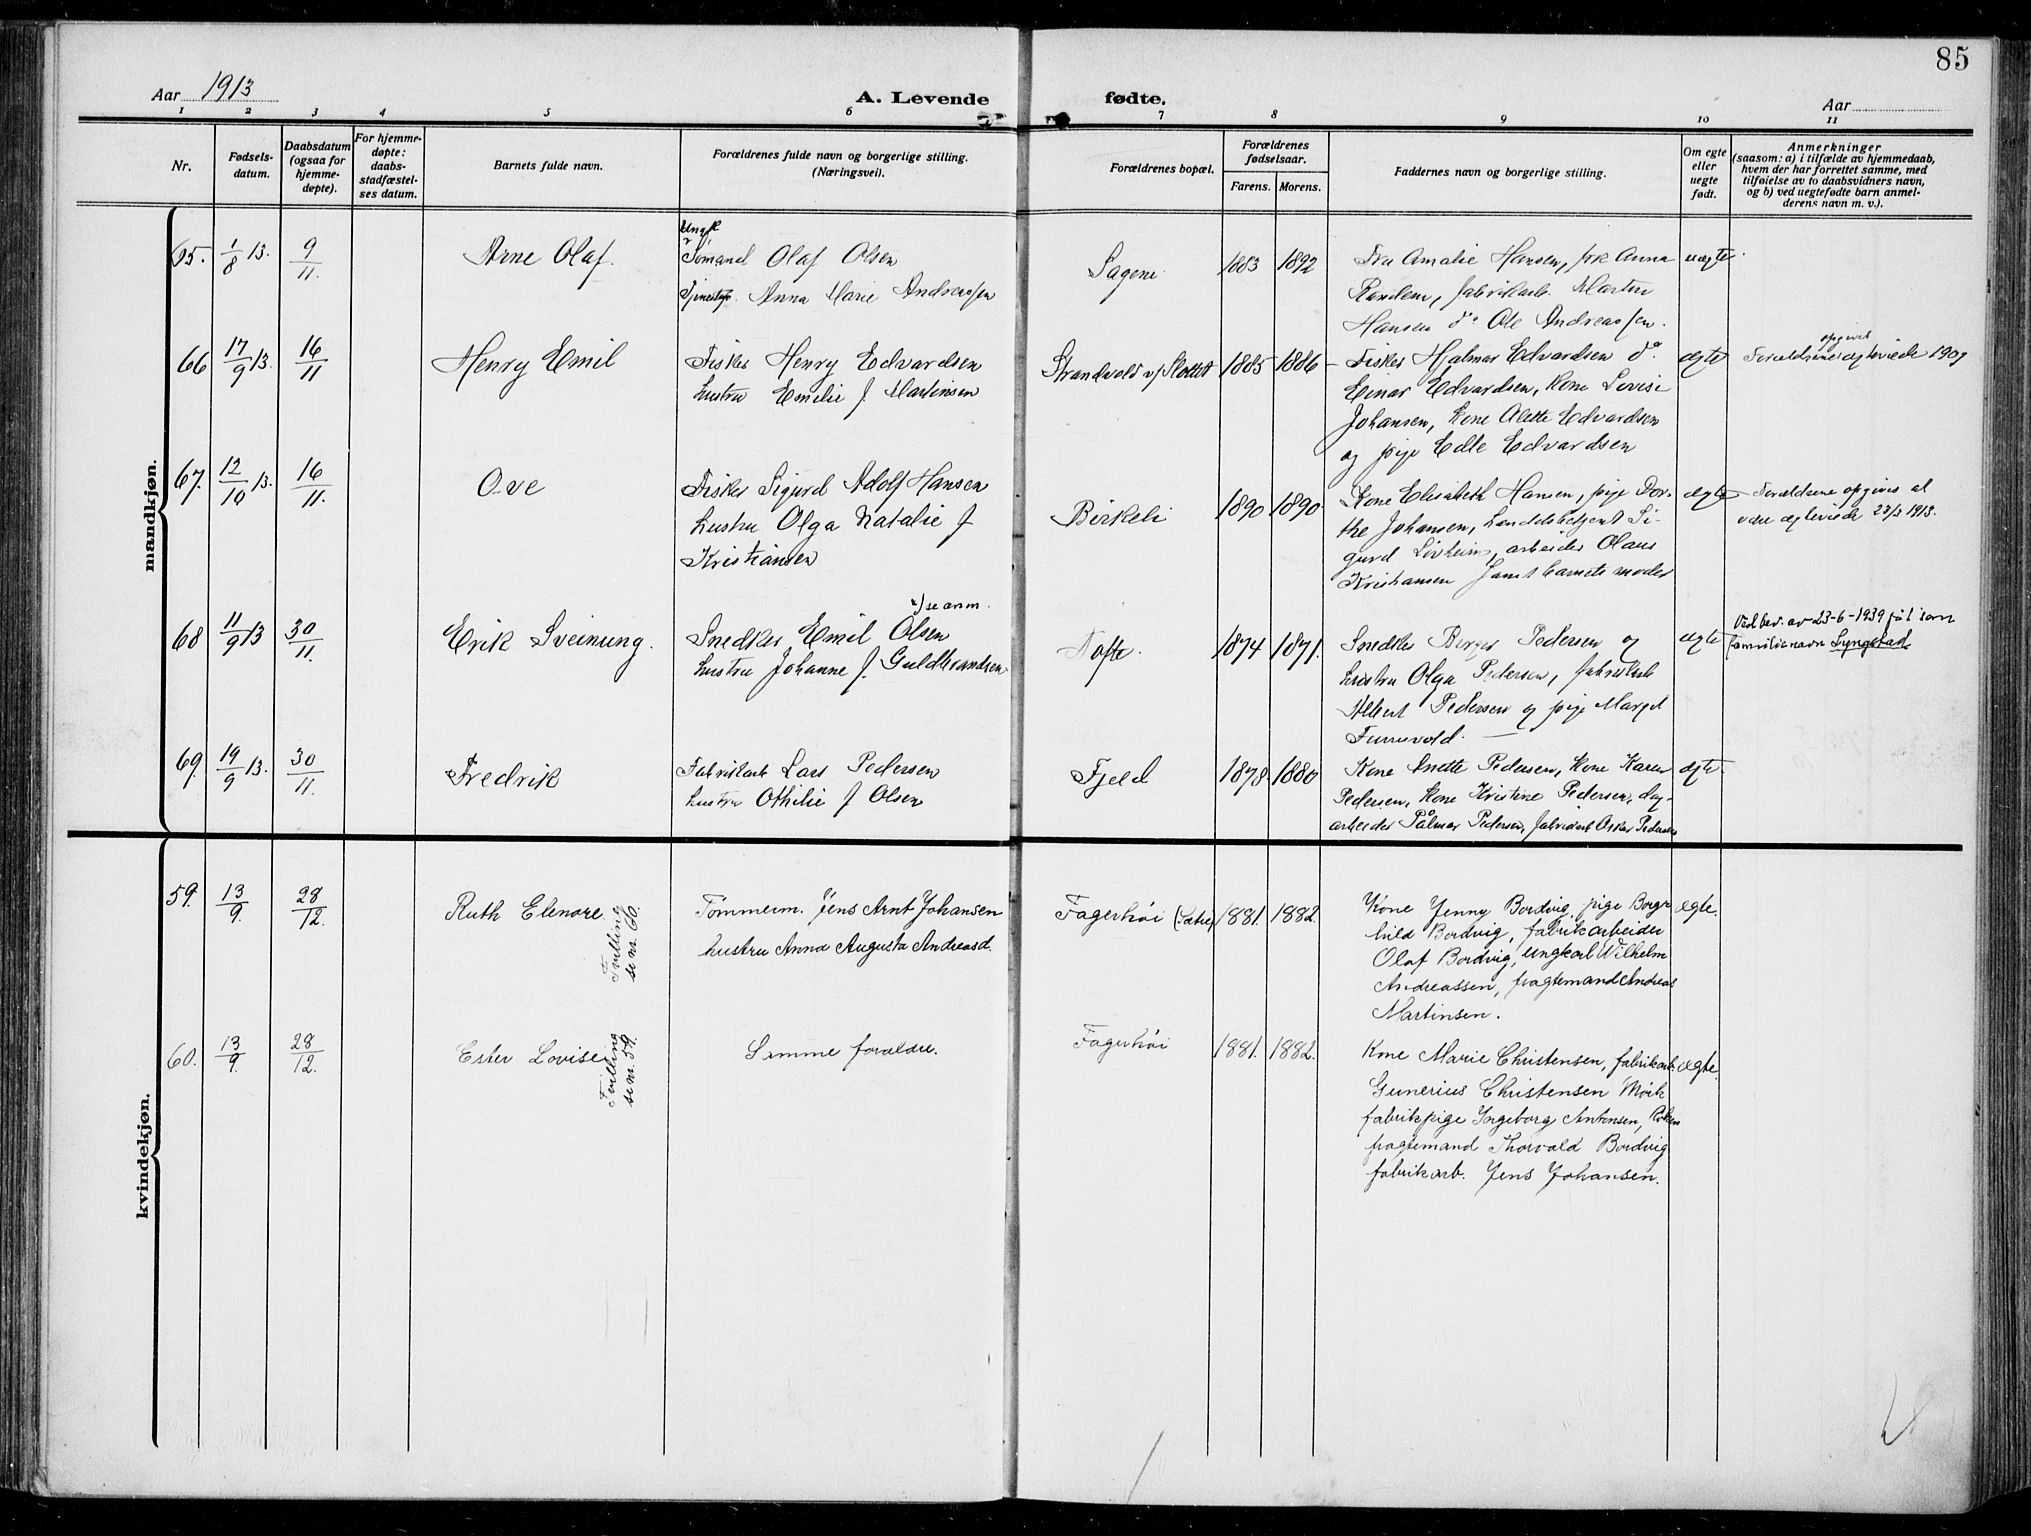 85
Aar 1913
A. Levende fødte.
Aar
1 2 3 4 5 6 7 8 9 10 11
Nr.
Fødsels-
datum.
Daabsdatum
(ogsaa for
hjemme-
døpte).
For hjemme-
døpte:
daabs-
stadfæstel-
ses datum.
Barnets fulde navn.
Forældrenes fulde navn og borgerlige stilling.
(Næringsvei).
Forældrenes bopæl.
Forældrenes
fødselsaar.
Farens. Morens.
Faddernes navn og borgerlige stilling.
Om egte
eller
uegte
født.
Anmerkninger
(saasom: a) i tilfælde av hjemmedaab,
hvem der har forrettet samme, med
tilføielse av to daabsvidners navn,
og b) ved uegtefødte barn anmel-
derens navn m. v.).
mandkjøn.
65. 1/8 13. 9/11. Arne Olaf.
Ungk
Sømand Olaf Olsen
Tjenestep. Anna Marie Andreassen
Sagene 1883 1892
Fru Amalie Hansen, frk Anna
Randem, fabrikarb. Martin
Hansen do Ole Andreassen.
uægte
66 17/9 13. 16/11 Henry Emil
Fisker Henry Edvardsen
hustru Emelie f. Martinsen
Strandvold v/ Slottet 1885 1886
Fisker Hjalmar Edvardsen do
Einar Edvardsen, Kone Lovise
Johansen, Kone Alette Edvardsen
og pige Edle Edvardsen
ægte
opgives
Forældrene ægteviede 1909
67. 12/10 13. 16/11. Ove
Fisker Sigurd Adolf Hansen
hustru Olga Natalie f
Kristiansen
Birkeli 1890 1890
Kone Elisabeth Hansen, pige Dor-
the Johansen, Landelsbetjent Si-
gurd Lövheim, arbeider Olaus
Kristiansen samt barnets moder
ægte
Forældrene opgives at
være ægteviede 23/3 1913.
68 11/9 13 30/11. Erik Sveinung.
x) se anm.
Snedker Emil Olsen
hustru Johanne f. Guldbrandsen
Tofte. 1874 1871.
Snedker Berger Pedersen og
hustru Olga Pedersen, fabrikarb
Albert Pedersen og pige Margit
Furuvold.
ægte
Ved bev. av 23-6-1939 fåt som
familienavn Lyngstad.
69. 19/9 13. 30/11. Fredrik
Fabrikarb Lars Pedersen
hustru Othilie f Olsen
Fjeld 1878 1880
Kone Anette Pedersen, Kone Karen
Pedersen, Kone Kristine Pedersen, dag-
arbeider Pålmar Pedersen, fabrikarb Oskar Pedersen
ægte
kvindekjøn.
59. 13/9. 28/12. Ruth Elenore.
Tvilling
se nr. 60.
Tømmerm. Jens Arnt Johansen
hustru Anna Augusta Andreasd.
Fagerhöi (Sætre) 1881. 1882.
Kone Jenny Bordvig, pige Borg-
hild Bordvig, fabrikarbeider
Olaf Bordvig, ungkarl Wilhelm
Andreassen, fragtemand Andreas
Martinsen.
ægte.
60. 13/9. 28/12. Ester Lovise
Tvilling
se nr. 59.
Samme forældre.
Fagerhöi 1881. 1882.
Kone Marie Christensen, fabrikarb.
Gunerius Christensen Mörk
fabrikpige Ingeborg Antonsen, Röken
fragtemand Thorvald Bordvig
fabrikarb. Jens Johansen.
ægte.